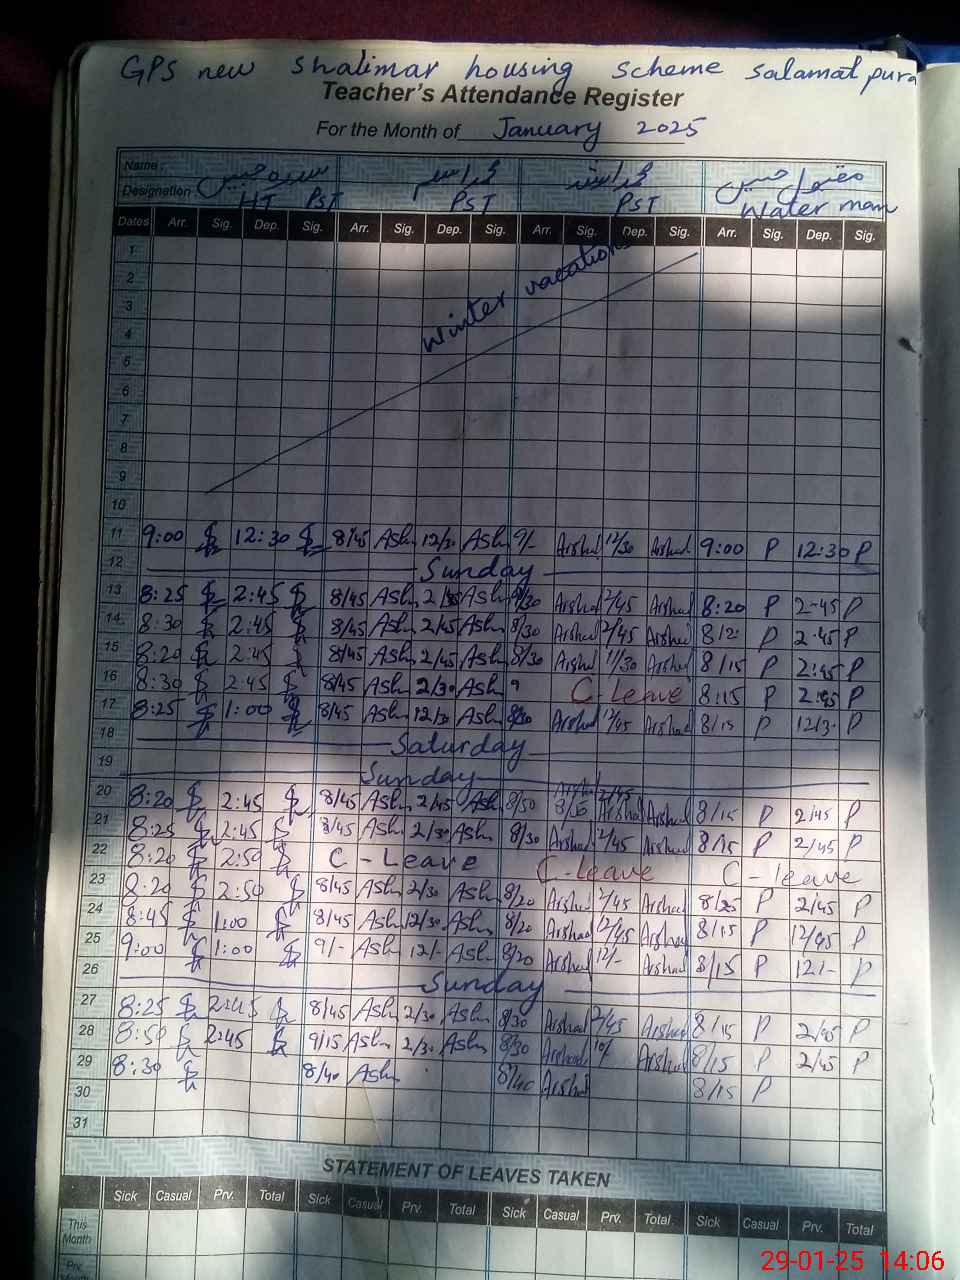 GPS new Shalimar housing scheme Salamatpura
Teacher's Attendance Register
For the Month of January 2025
Name :
Designation HT PST PST PST Water man
Dates Arr. Sig. Dep. Sig. Arr. Sig. Dep. Sig. Arr. Sig. Dep. Sig. Arr. Sig. Dep. Sig.
1
2
3
Winter vacation
4
5
6
7
8
9
10
11 9:00 12:30 8/45 Ash 12/30 Ash 9/- Arshad 12/30 Arshad 9:00 P 12:30 P
12 Sunday
13 8:25 2:45 8/45 Ash 2/30 Ash 8/30 Arshad 2/45 Arshad 8:20 P 2-45 P
14 8:30 2:45 8/45 Ash 2/45 Ash 8/30 Arshad 2/45 Arshad P 2.45 P
15 8:20 2:45 8/45 Ash 2/45 Ash 8/30 Arshad 11/30 Arshad 8/15 P 2:45 P
16 8:30 2:45 8/45 Ash 2/30 Ash 9 C-Leave 8:15 P 2:45 P
17 8:25 1:00 8/45 Ash 12/30 Ash 8/30 Arshad 12/45 Arshad 8/15 P P
18 Saturday
19 Sunday
20 8:20 2:45 8/45 Ash 2/45 Ash 8/50 Arshad 2/45 Arshad 8/15 P 2/45 P
21 8:25 2:45 8/45 Ash 2/30 Ash 8/30 Arshad 2/45 Arshad 8/15 P 2/45 P
22 8:20 2:50 C-Leave C-Leave C-leave
23 8:20 2:50 8/45 Ash 2/30 Ash 8/20 Arshad 2/45 Arshad 8/25 P 2/45 P
24 8:45 1:00 8/45 Ash 12/30 Ash 8/20 Arshad 12/45 Arshad 8/15 P 12/45 P
25 9:00 1:00 9/- Ash 12/- Ash 8/20 Arshad 12/- Arshad 8/15 P 12/- P
26 Sunday
27 8:25 2:45 8/45 Ash 2/30 Ash 8/30 Arshad 2/45 Arshad 8/15 P 2/45 P
28 8:50 2:45 9/15 Ash 2/30 Ash 8/30 Arshad 10/ Arshad 8/15 P 2/45 P
29 8:30 8/40 Ash 8/40 Arshad 8/15 P
30
31
STATEMENT OF LEAVES TAKEN
Sick Casual Prv. Total Sick Casual Prv. Total Sick Casual Prv. Total Sick Casual Prv. Total
This Month
Prv. Month
29-01-25 14:06